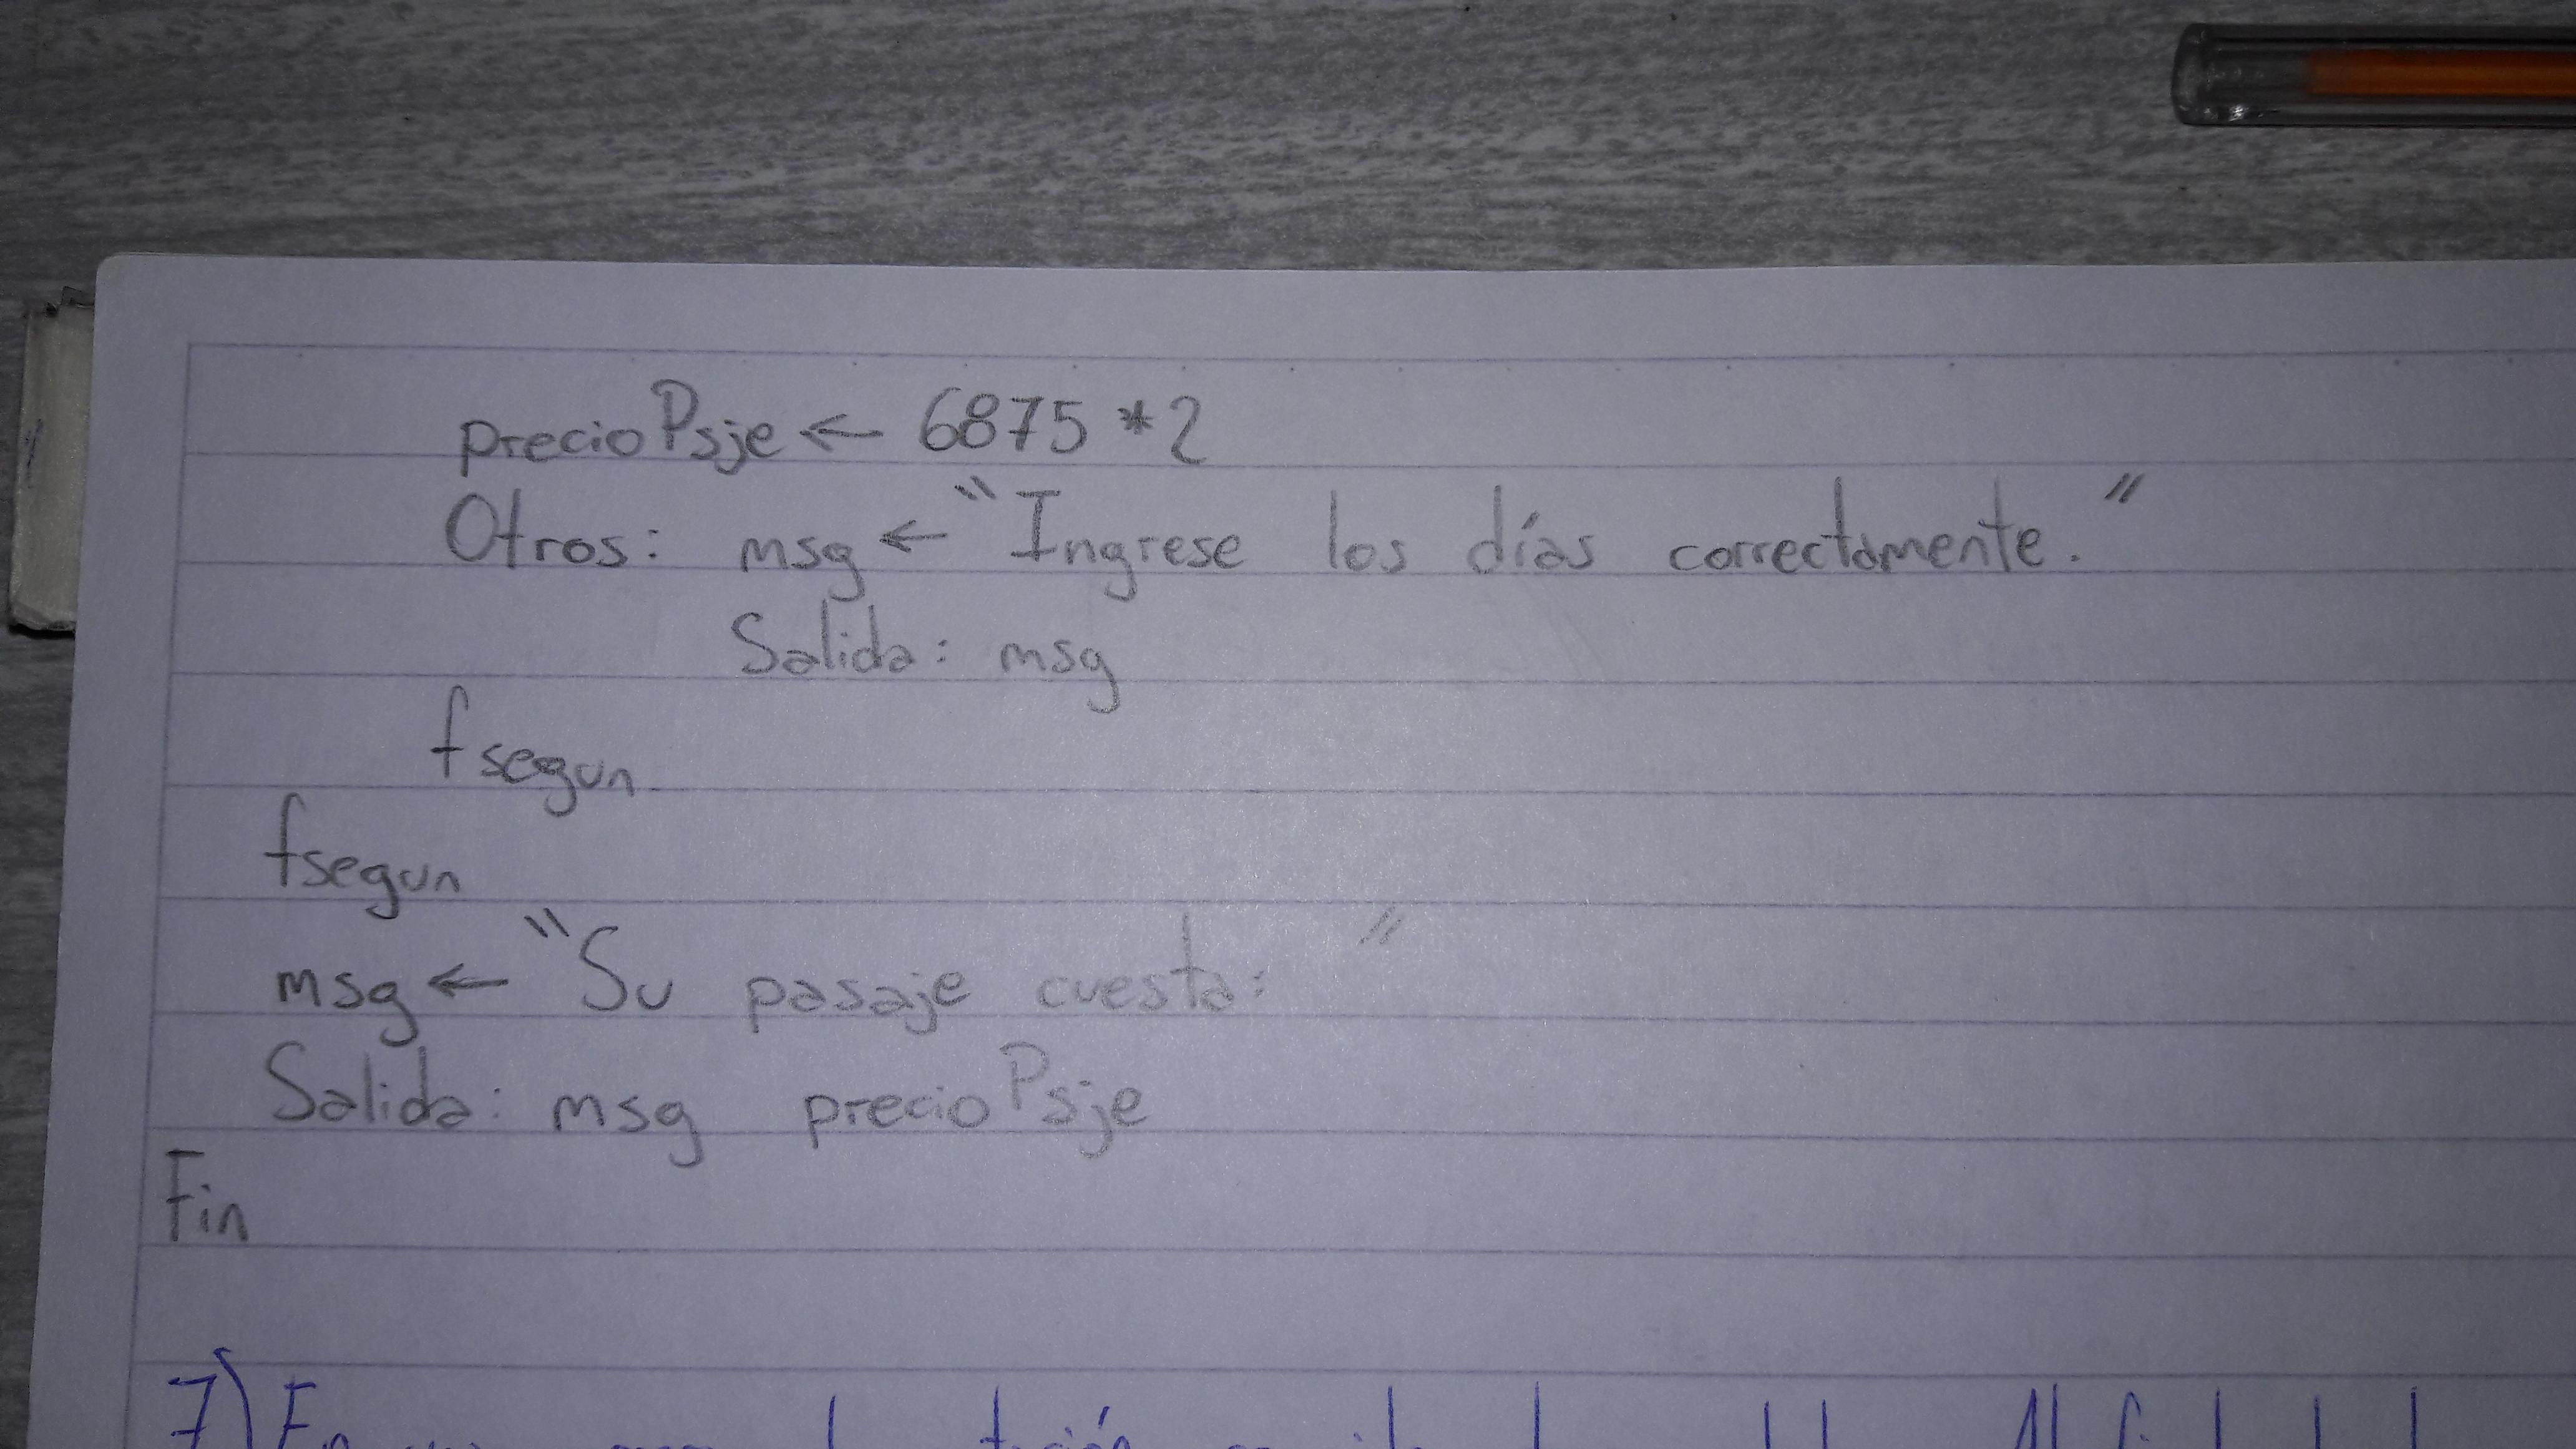 precioPsje ← 6875 * 2
Otros: msg ← "Ingrese los días correctamente."
Salida: msg
fsegun
fsegun
msg ← "Su pasaje cuesta: "
Salida: msg precioPsje
Fin
7) En